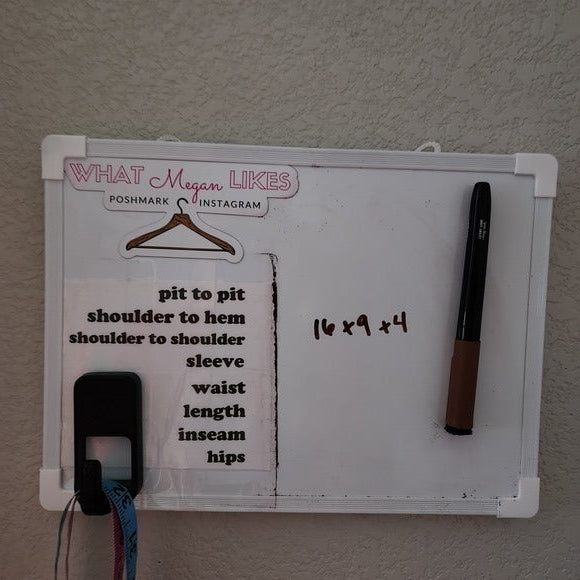 WHAT Megan LIKES
POSHMARK INSTAGRAM
pit to pit
shoulder to hem
shoulder to shoulder
sleeve
waist
length
inseam
hips
16 x 9 x 4